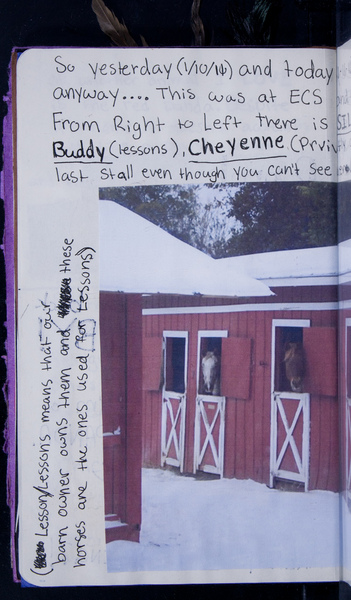 So yesterday (1/10/11) and today
anyway.... This was at ECS
From Right to Left there is
Buddy (lessons), Cheyenne (Prvi
last stall even though you can't see
(Lesson/Lessons means that our
barn owner owns them and these
horses are the ones used for Lessons)